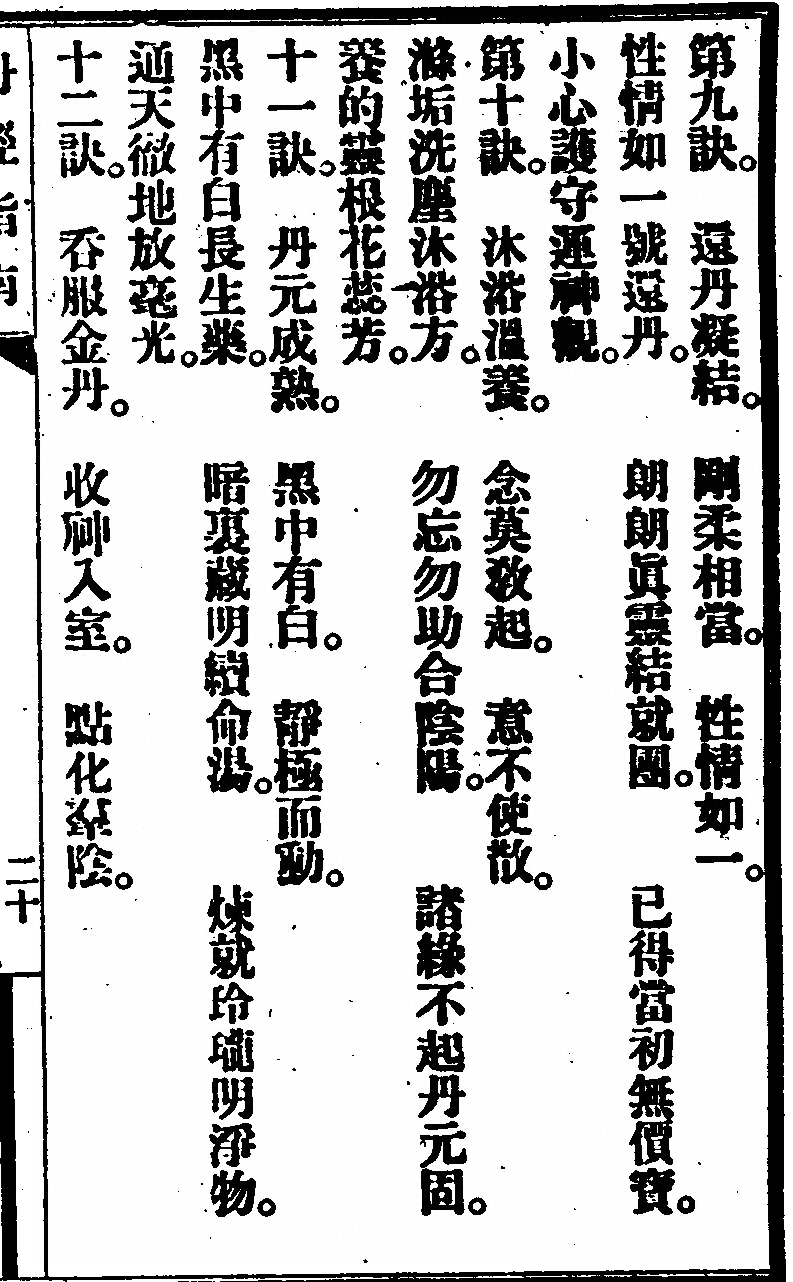 第九訣。 還丹凝結。 剛柔相當。 性情如一。
性情如一號還丹。 朗朗眞靈結就團。 已得當初無價寶。
小心護守運神觀。
第十訣。 沐浴溫養。 念莫教起。 意不使散。
滌垢洗塵沐浴方。 勿忘勿助合陰陽。 諸緣不起丹元固。
養的靈根花蕊芳。
十一訣。 丹元成熟。 黑中有白。 靜極而動。
黑中有白長生藥。 暗裏藏明續命湯。 煉就玲瓏明淨物。
通天徹地放毫光。
十二訣。 吞服金丹。 收神入室。 點化羣陰。
丹經指南
二十